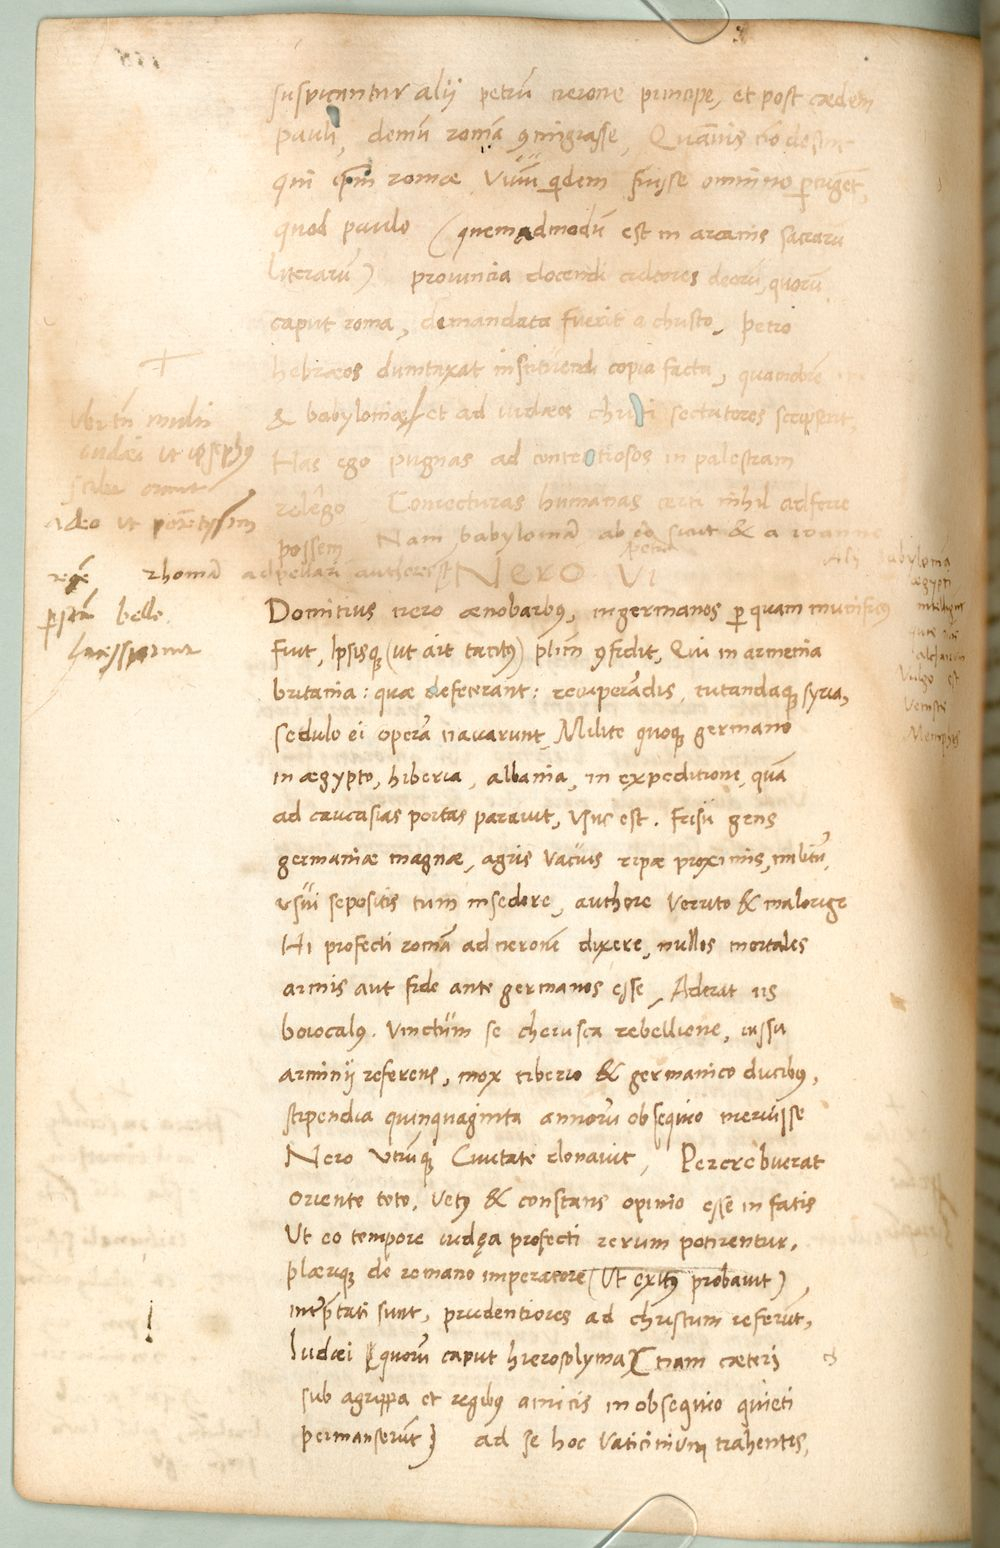 suspicantur alij petrũ nerone principe, et post cædem
pauli, demũ romã ꝯmigrasse, Quãuis nõ desint
qui romæ Vnũ qdem fuisse omnino ꝑnegẽt,
quod paulo (quemadmodũ est in arcanis sacrarũ
literarũ) prouincia docendi cultores deorũ, quorũ
caput roma, demandata fuerit a christo, petro
hebræos dumtaxat instituendi copia facta, quamobrẽ
& babyloniæ et ad iudæos christi sectatores scripserit,
Has ego pugnas ad contẽtiosos in palestram
relego Coniecturas humanas certi nihil adferre
possem Nam babyloniã ab eo sicut & a ioanne
petro
rhomã adpellari authores sũt
Nero VI
Domitius nero ænobarbꝰ, in germanos ꝑ quam munificꝰ
Fuit, Ipsisqꝫ (ut ait tacitꝰ) plm̃ ꝯfidit, Qui in armenia
britania: quæ defecerant: recuperãdis, tutandaqꝫ syria,
sedulo ei operã nauarunt, Milite quoqꝫ germano
in ægypto, hiberia, albania, in expeditione, quã
ad caucasias portas parauit, usus est. Frisii gens
germaniæ magnæ, agris vacuis ripæ proximis, militũ
usui sepositis tum insedere, authore Verrito & malorige
Hi profecti romã ad neronẽ dixere, nullos mortales
armis aut fide ante germanos esse, Aderat iis
boiocalꝰ. Vinctum se cherusca rebellione, iussu
arminij referens, mox tiberio & germanico ducibꝰ,
stipendia quinquaginta annorũ obsequio meruisse
Nero Utrũqꝫ Ciuitate donauit, Percrebuerat
oriente toto, Vetꝰ & constans opinio esse in fatis
Ut eo tempore iudęa profecti rerum potirentur,
plæriqꝫ de romano imperatore (Ut exitꝰ probauit),
intꝑtati sunt, prudentiores ad christum referũt,
Iudæi (quorũ caput hierosolyma nam cæteri
sub agrippa et regibꝰ amicis in obsequio quieti
permanserũt) ad se hoc vaticinium trahentes,
Vbi tñ multi
iudæi ut iosephꝰ
adeo ut potẽtissim
regẽ
bello
lacessierint
Alij babyloniã
ægypti
intelligũt
Vulgo est
Vetusti
Memphis